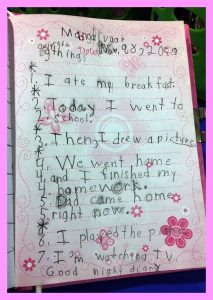 Things
1. I ate my breakfast.
2. Today I went to
school.
3. Then, I drew a picture.
4. We went home
and I finished my
homework.
5. Dad came home
right now.
6. I played the
7. I'm watching T.V.
Good night diary